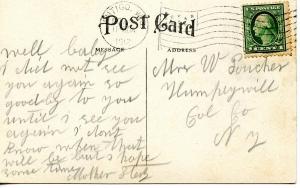 Post Card
MESSAGE
ADDRESS
U.S. POSTAGE
1 CENT 1
1912
well baby
I did not see
you again so
goodby to you
until I see you
again I dont
know when that
will be but I hope
some time
Mother
Mrs W
Humpeyvill
Col Co
N Y